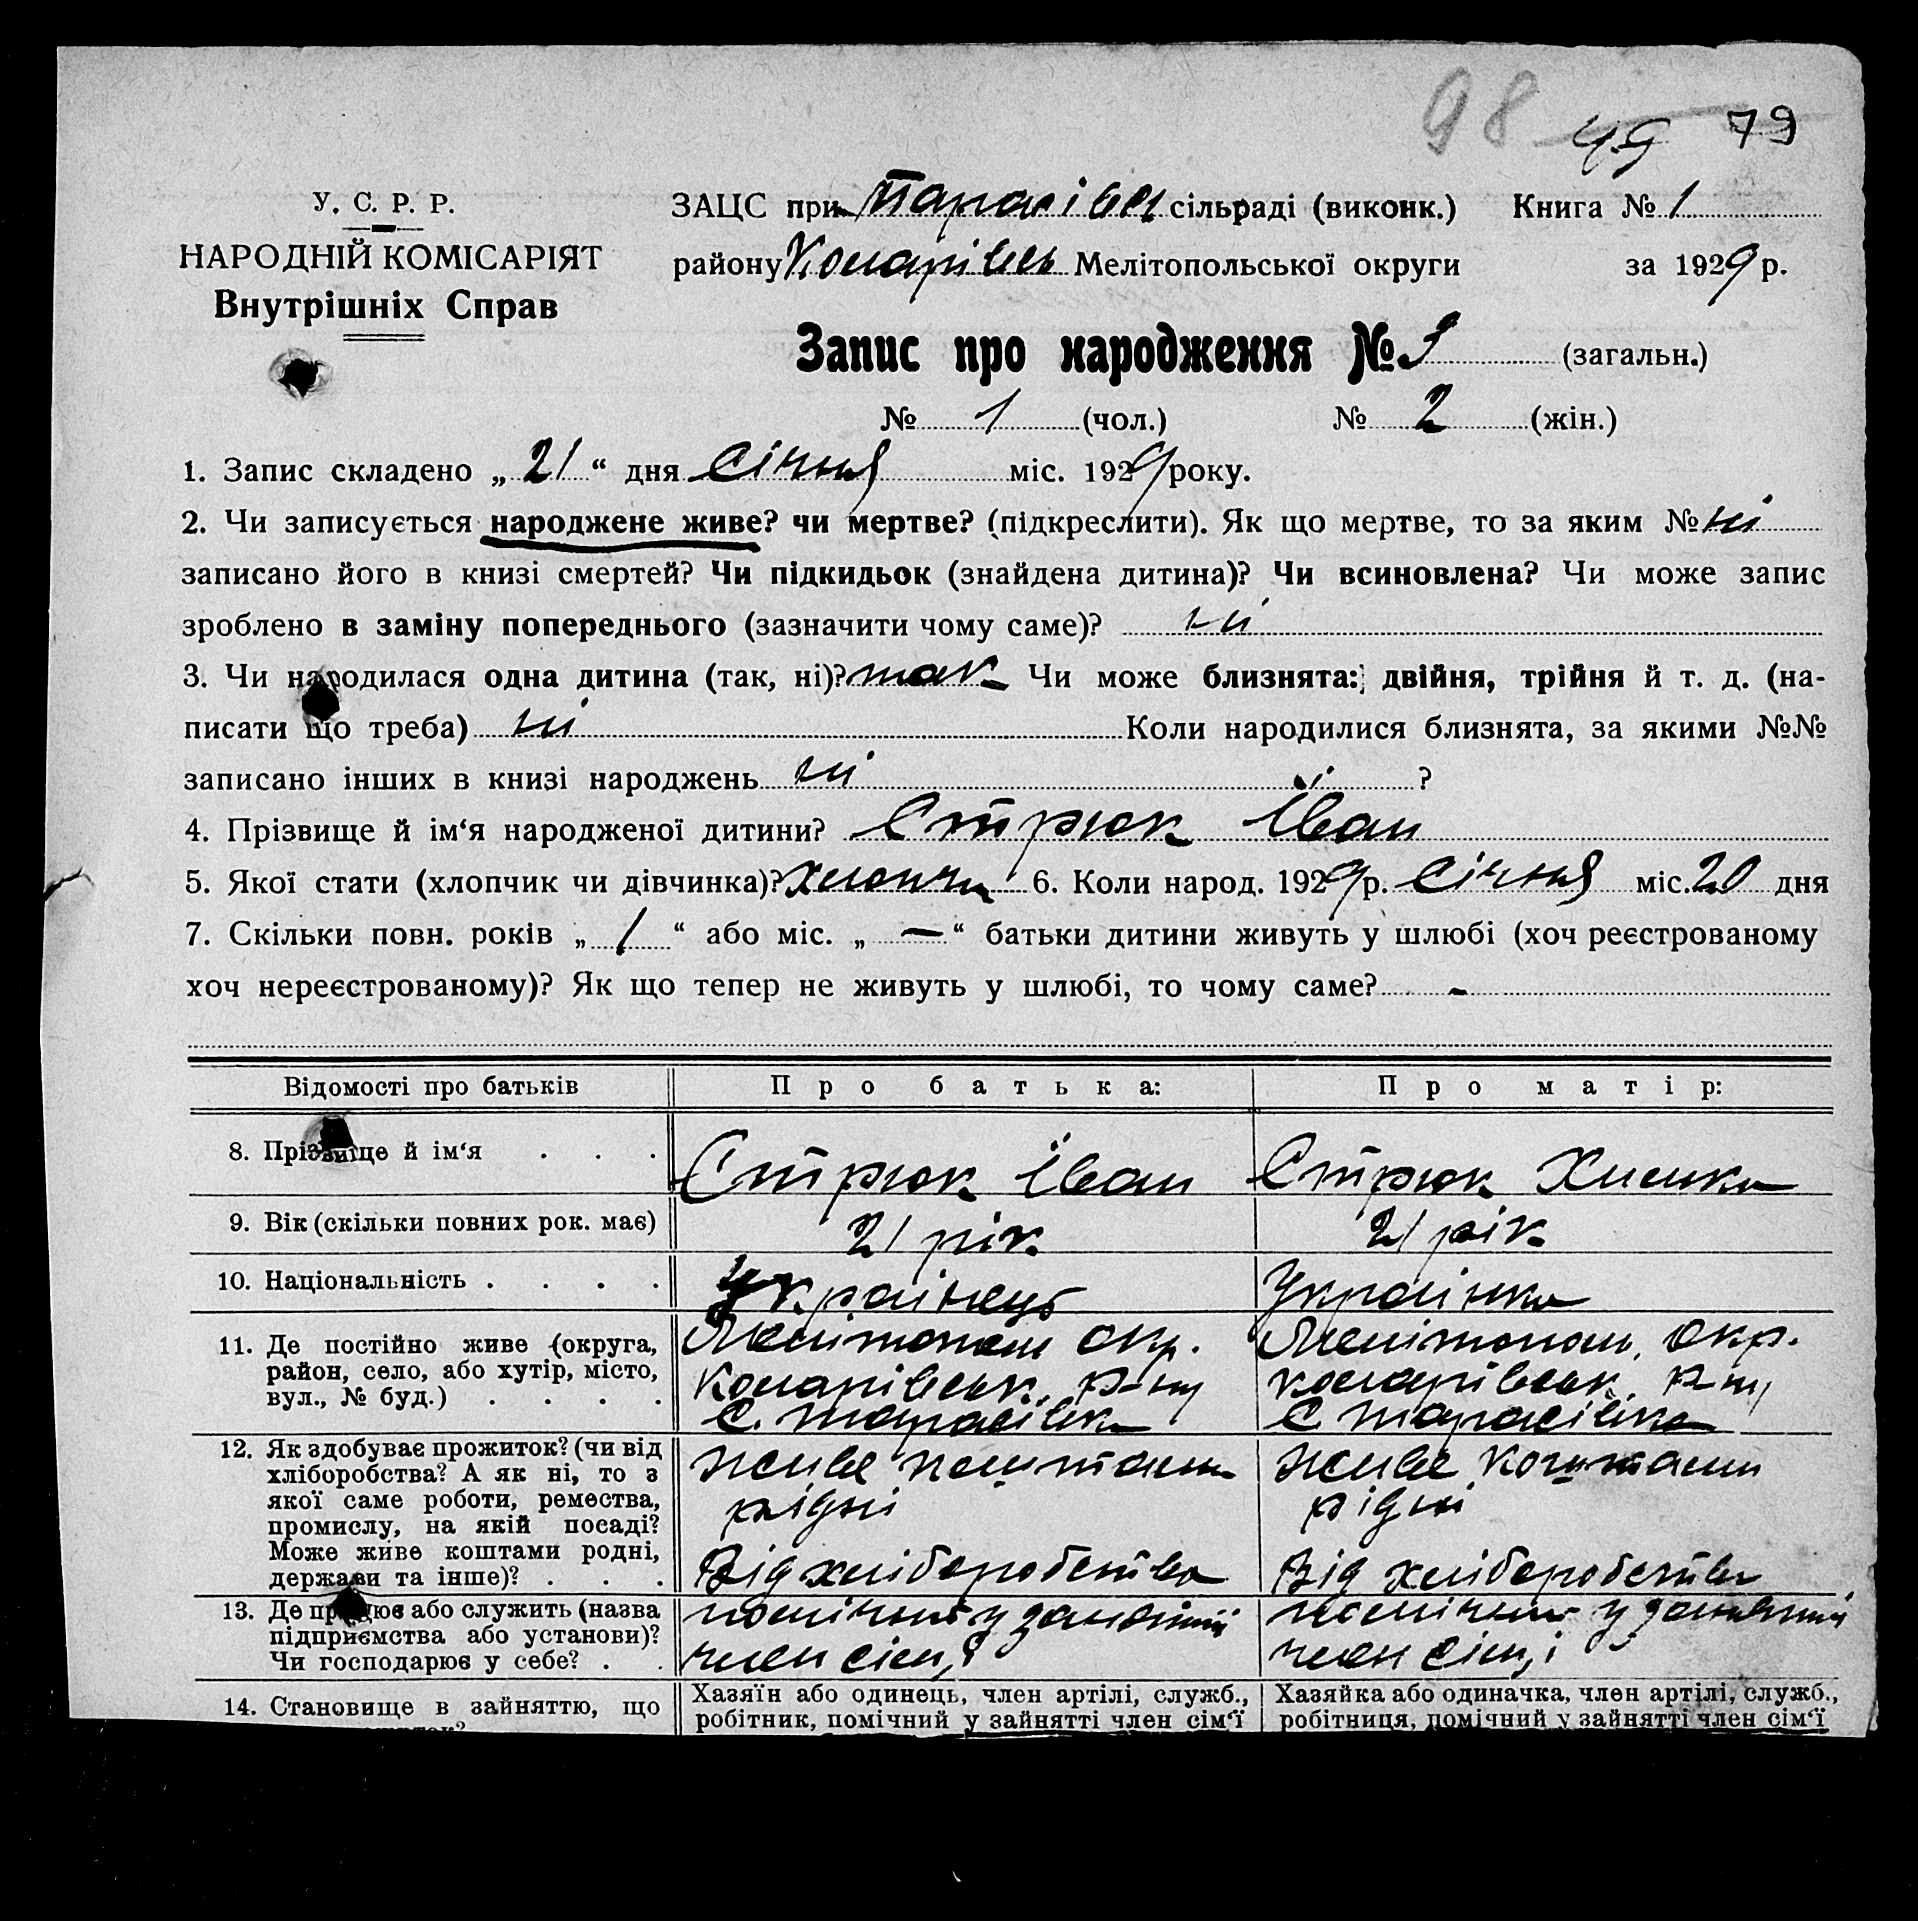 98 49 79
У. С. Р. Р.
НАРОДНІЙ КОМІСАРІЯТ
Внутрішніх Справ
ЗАЦС при Тарасівськ сільраді (виконк.) Книга № 1
району Комарівськ Мелітопольської округи за 1929 р.
Запис про народження № 3 (загальн.)
№ 1 (чол.) № 2 (жін.)
1. Запис складено „ 21 “ дня Січня міс. 1929 року.
2. Чи записується народжене живе? чи мертве? (підкреслити). Як що мертве, то за яким № ні
записано його в книзі смертей? Чи підкидьок (знайдена дитина)? Чи всиновлена? Чи може запис
зроблено в заміну попереднього (зазначити чому саме)? ні
3. Чи народилася одна дитина (так, ні)? так Чи може близнята: двійня, трійня й т. д. (на-
писати що треба) ні Коли народилися близнята, за якими №№
записано інших в книзі народжень ні ?
4. Прізвище й ім‘я народженої дитини? Стрюк Іван
5. Якої стати (хлопчик чи дівчинка)? хлопчи 6. Коли народ. 1929 р. Січня міс. 20 дня
7. Скільки повн. років „ 1 “ або міс. „ — “ батьки дитини живуть у шлюбі (хоч реєстрованому
хоч нереєстрованому)? Як що тепер не живуть у шлюбі, то чому саме? -
Відомості про батьків Про батька: Про матір:
8. Прізвище й ім‘я . . . Стрюк Іван Стрюк
9. Вік (скільки повних рок. має) 21 рік 21 рік
10. Національність . . . . Українець Українка
11. Де постійно живе (округа,
район, село, або хутір, місто,
вул., № буд.) . . . .
Мелітополь окр.
Комарівськ. р-ну
с. Тарасівка
Мелітополь. Окр.
Комарівськ. р-ну
с Тарасівка
12. Як здобуває прожиток? (чи від
хліборобства? А як ні, то з
якої саме роботи, ремества,
промислу, на якій посаді?
Може живе коштами родні,
держави та інше)? . . .
живе коштами
рідні
Від хліборобства
живе коштами
рідні
Від хліборобства
13. Де працює або служить (назва
підприємства або установи)?
Чи господарює у себе? . .
помічний у занятті
член сім,ї
помічний у занятті
член сім,ї
14. Становище в зайняттю, що
Хазяїн або одинець, член артілі, служб.,
робітник, помічний у зайнятті член сім‘ї
Хазяйка або одиначка, член артілі, служб.,
робітниця, помічний у зайнятті член сім‘ї